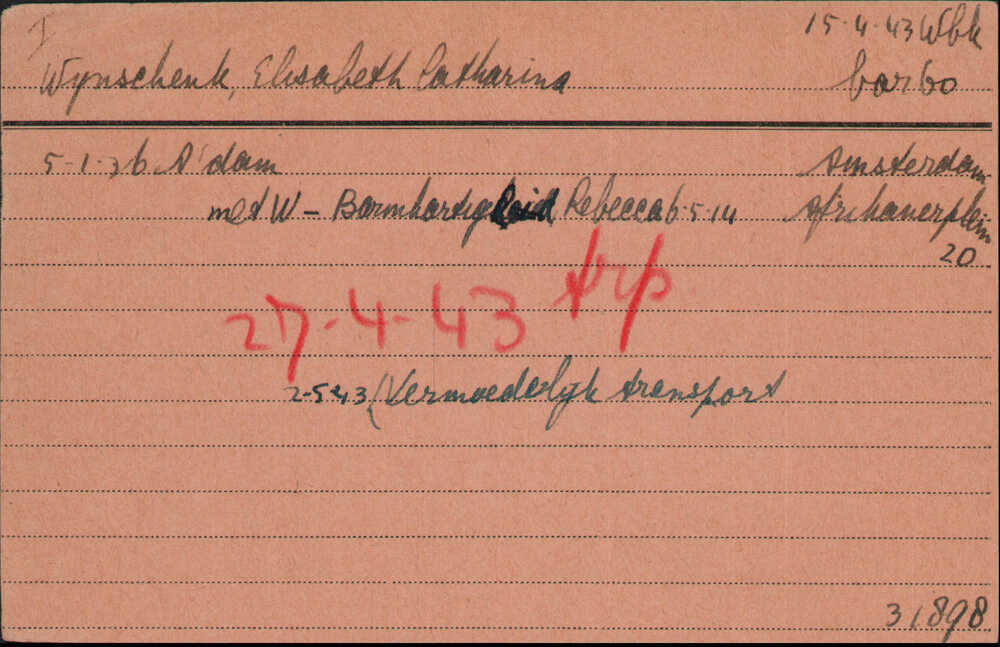 I
15-4-43 Wbk
Wynschenk, Elisabeth Catharina
bar 60
5-1-26 A'dam
Amsterdam
met W - Barmhartigheid Rebecca 6-5-14
Afrikanerplein
20
27-4-43 trp
2-5-43 (Vermoedelyk transport
31898